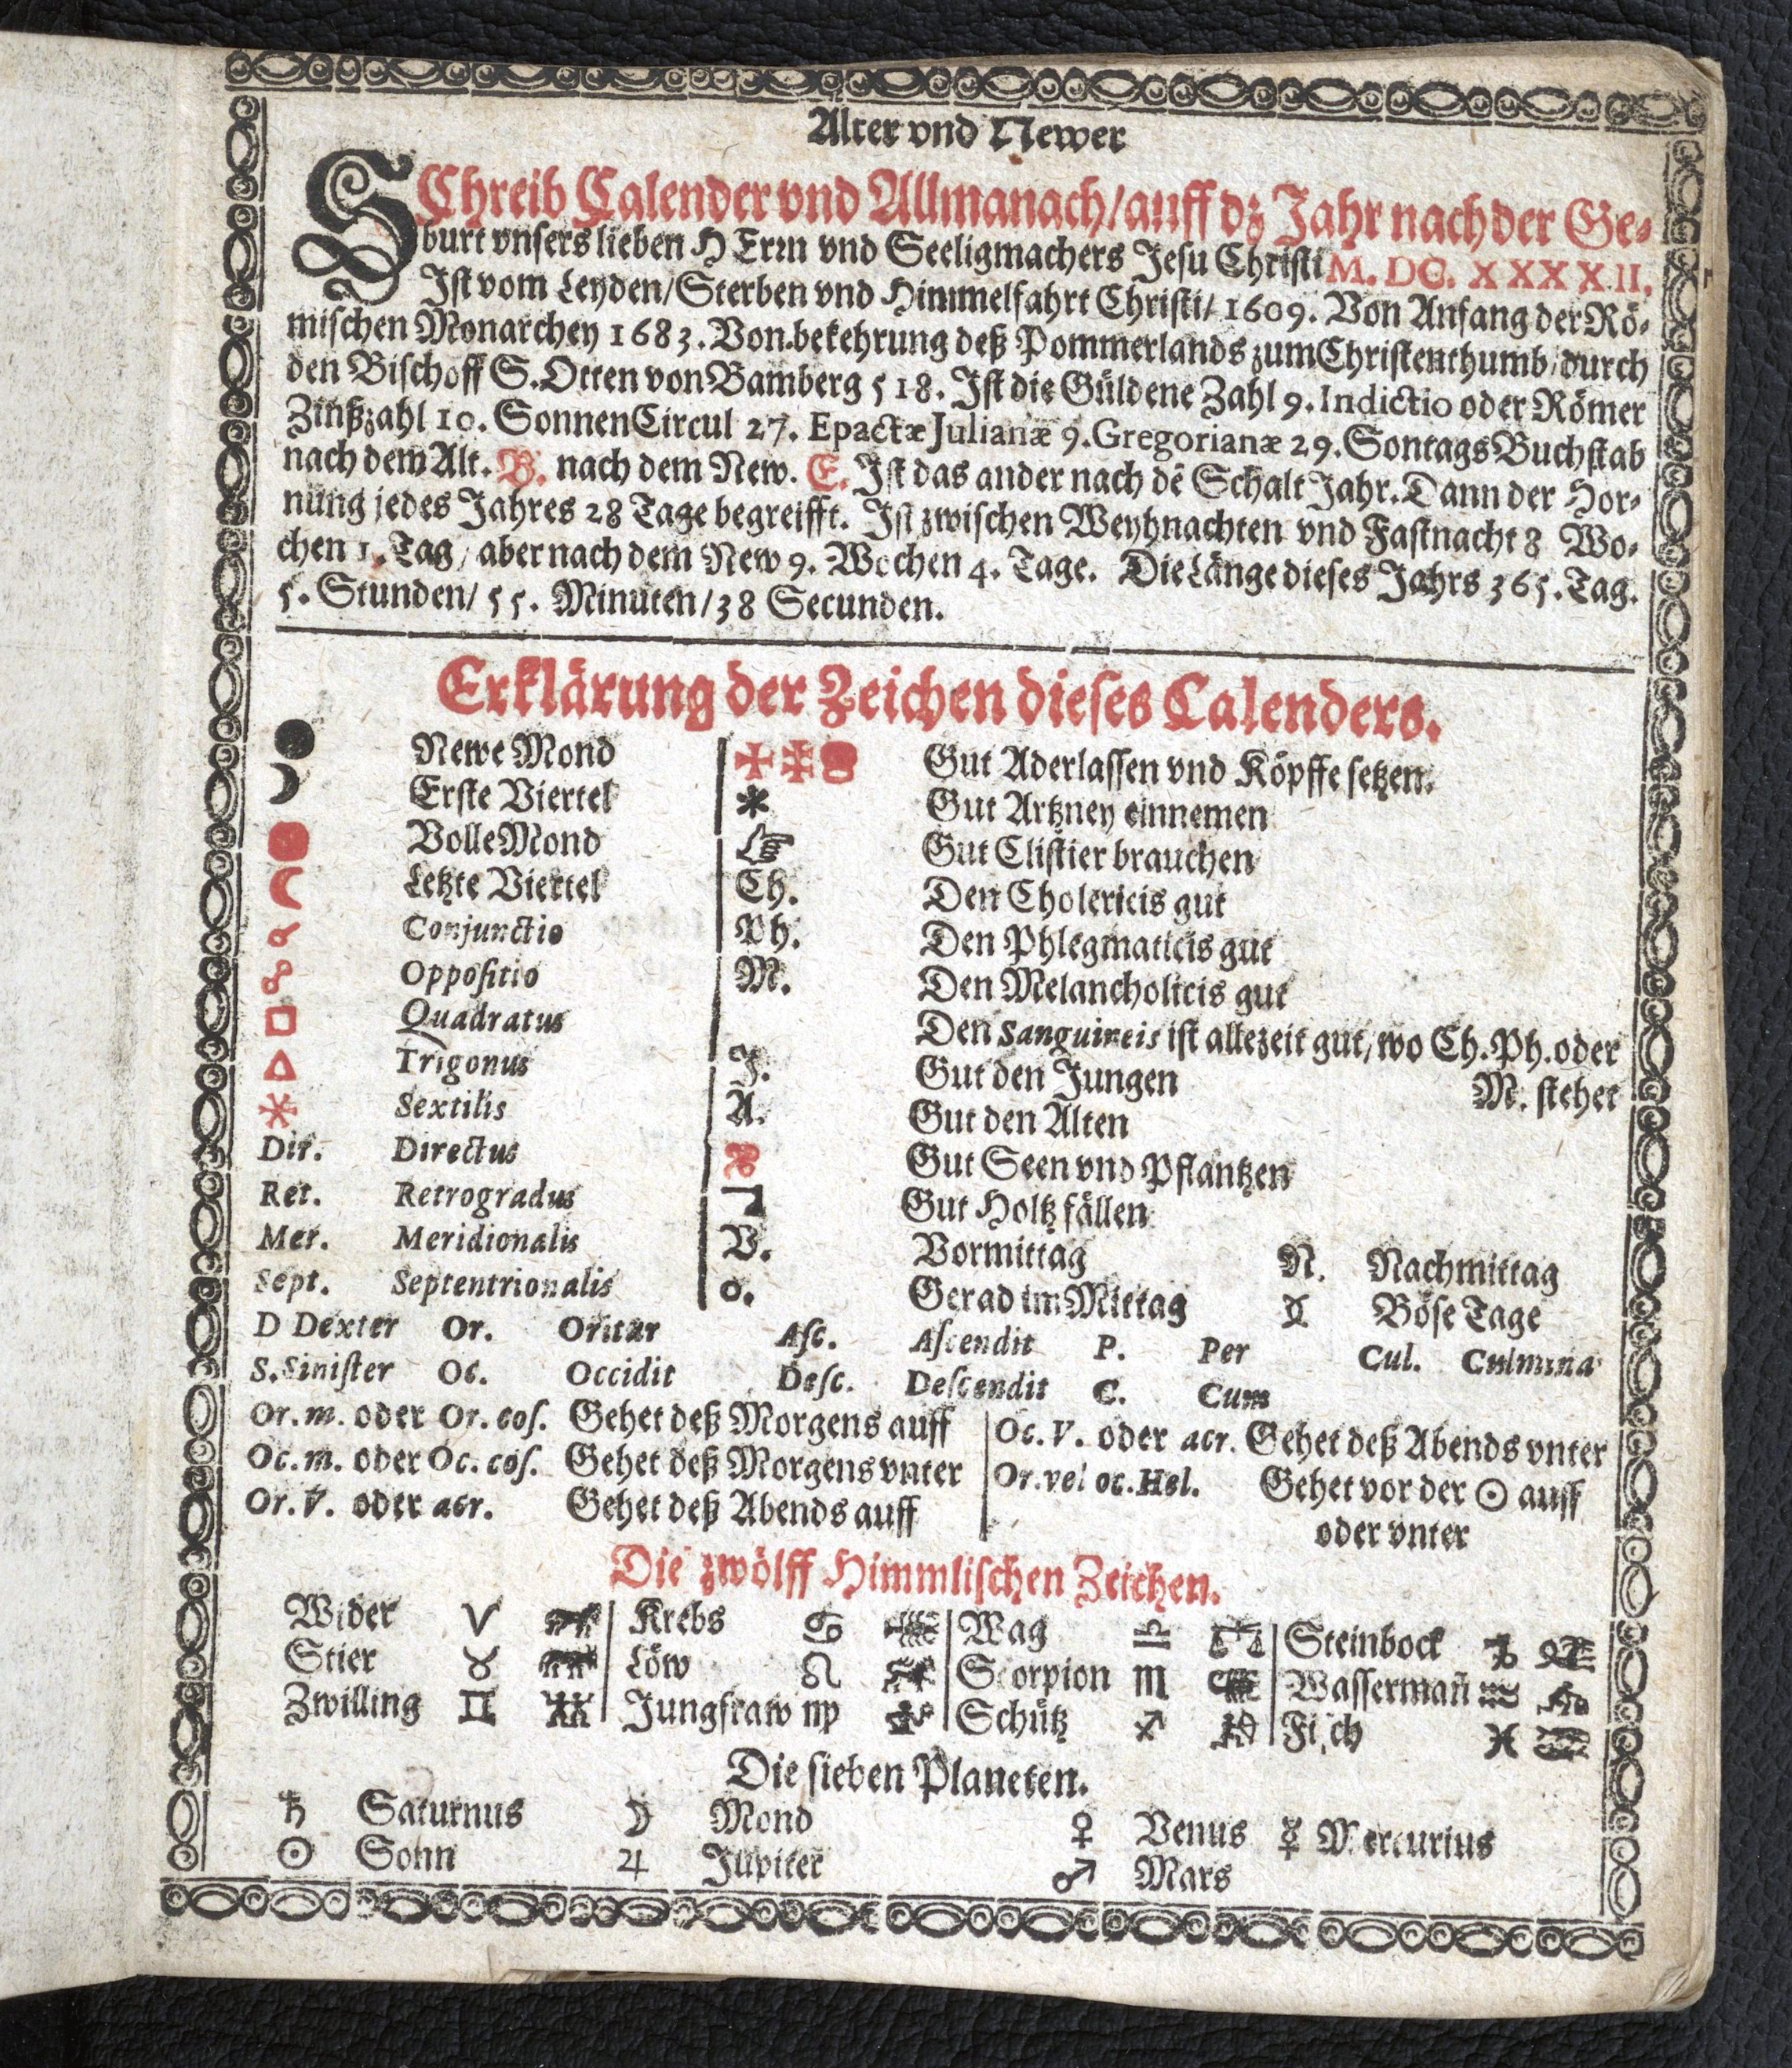 Alter vnd Newer
SChreib Calender vnd Allmanach/auff dz Jahr nach der Ge-
burt vnsers lieben HErrn vnd Seeligmachers Jesu Christi M. DC. XXXXII.
Ist vom Leyden/Sterben vnd Himmelfahrt Christi/1609. Von Anfang der Rö-
mischen Monarchey 1683. Von bekehrung deß Pommerlands zum Christenthumb/durch
den Bischoff S. Otten von Bamberg 518. Ist die Güldene Zahl 9. Indictio oder Römer
Zinßzahl 10. SonnenCircul 27. Epactæ Julianæ 9. Gregorianæ 29. SontagsBuchstab
nach dem Alt. B. nach dem New. E. Ist das ander nach dē Schalt Jahr. Dann der Hor-
nung jedes Jahres 28 Tage begreifft. Ist zwischen Weyhnachten vnd Fastnacht 8 Wo-
chen 1. Tag/ aber nach dem New 9. Wochen 4. Tage. Die Länge dieses Jahrs 365. Tag.
5. Stunden/ 55. Minuten/38 Secunden.
Erklärung der Zeichen dieses Calenders.
Newe Mond Gut Aderlassen vnd Köpffe setzen.
Erste Viertel Gut Artzney einnemen
Volle Mond Gut Clistier brauchen
Letzte Viertel Ch. Den Cholericis gut
☌ Conjunctio Ph. Den Phlegmaticis gut
☍ Oppositio M. Den Melancholicis gut
□ Quadratus Den Sanguineis ist allezeit gut/wo Ch. Ph. oder
△ Trigonus J. Gut den Jungen M. stehet
Sextilis A. Gut den Alten
Dir. Directus Gut Seen vnd Pflantzen
Ret. Retrogradus Gut Holtz fällen
Mer. Meridionalis V. Vormittag N. Nachmittag
Sept. Septentrionalis o. Gerad im Mittag Böse Tage
D Dexter Or. Oritur Asc. Ascendit P. Per Cul. Culmina
S. Sinister Oc. Occidit Desc. Descendit C. Cum
Or. m. oder Or. cos. Gehet deß Morgens auff Oc. V. oder acr. Gehet deß Abends vnter
Oc. m. oder Oc. cos. Gehet deß Morgens vnter Or. vel oc. Hel. Gehet vor der ☉ auff
Or. V. oder acr. Gehet deß Abends auff oder vnter
Die zwölff Himmlischen Zeichen.
Wider ♈ Krebs ♋ Wag ♎ Steinbock ♑
Stier ♉ Löw ♌ Scorpion ♏ Wasserman̄ ♒
Zwilling ♊ Jungfraw ♍ Schütz ♐ Fisch ♓
Die sieben Planeten.
♄ Saturnus ☽ Mond ♀ Venus ☿ Mercurius
☉ Sonn ♃ Jupiter ♂ Mars